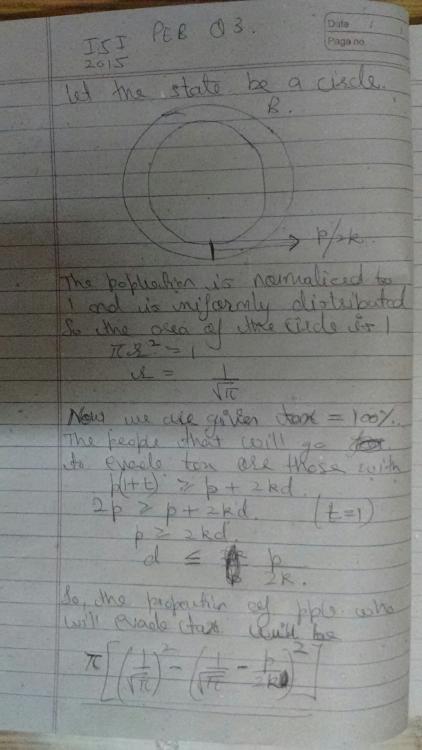 ISI PEB Q3.
2015
Date
Page no
Let the state be a circle.
B.
p/2k.
The population is normalized to
1 and is uniformly distributed
So the area of the circle is 1
πr² = 1
r = 1/√π
Now we are given tax = 100%.
The people that will go
to evade tax are those with
p(1+t) ≥ p + 2kd.
2p ≥ p + 2kd. (t=1)
p ≥ 2kd.
d ≤ p/2k.
So, the proportion of pple who
will evade tax will be
π[(1/√π)² - (1/√π - p/2k)²]